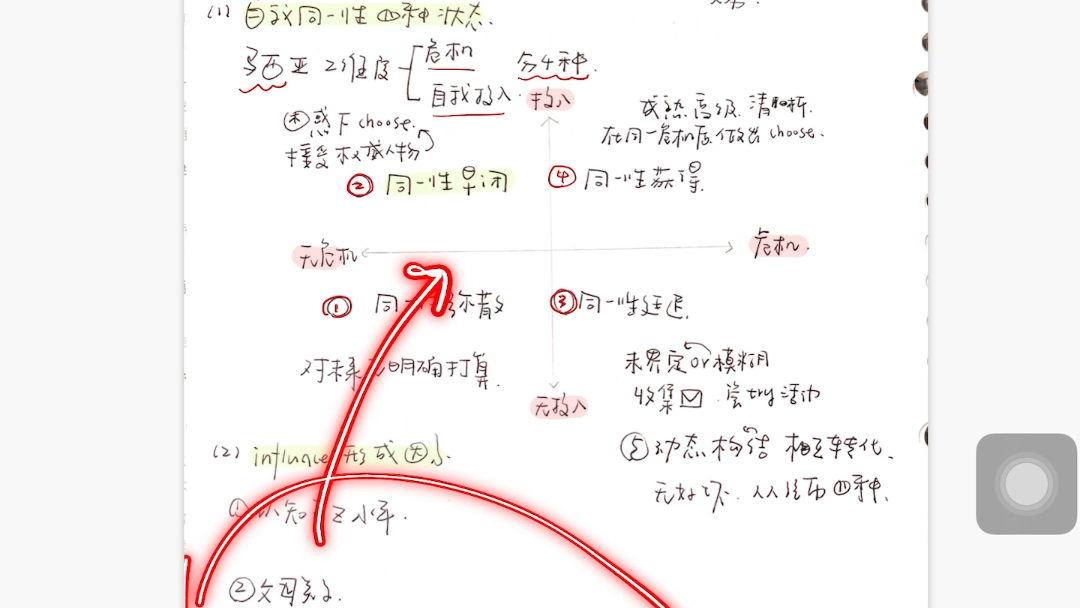 (1) 自我同一性四种状态.
马西亚 2维度
危机
自我投入.
分4种.
投入
困惑下 choose.
接受权威人物
成熟高级.清晰.
在同一危机后做出choose.
② 同一性早闭
④ 同一性获得.
无危机
危机.
① 同一性弥散
③ 同一性延迟.
对未来无明确打算.
未界定or模糊
收集 尝try活动
无投入
(2) influnce形成因
⑤ 动态构结 相互转化.
无好坏. 人人经历四种.
① 认知 水平.
② 父母关系.